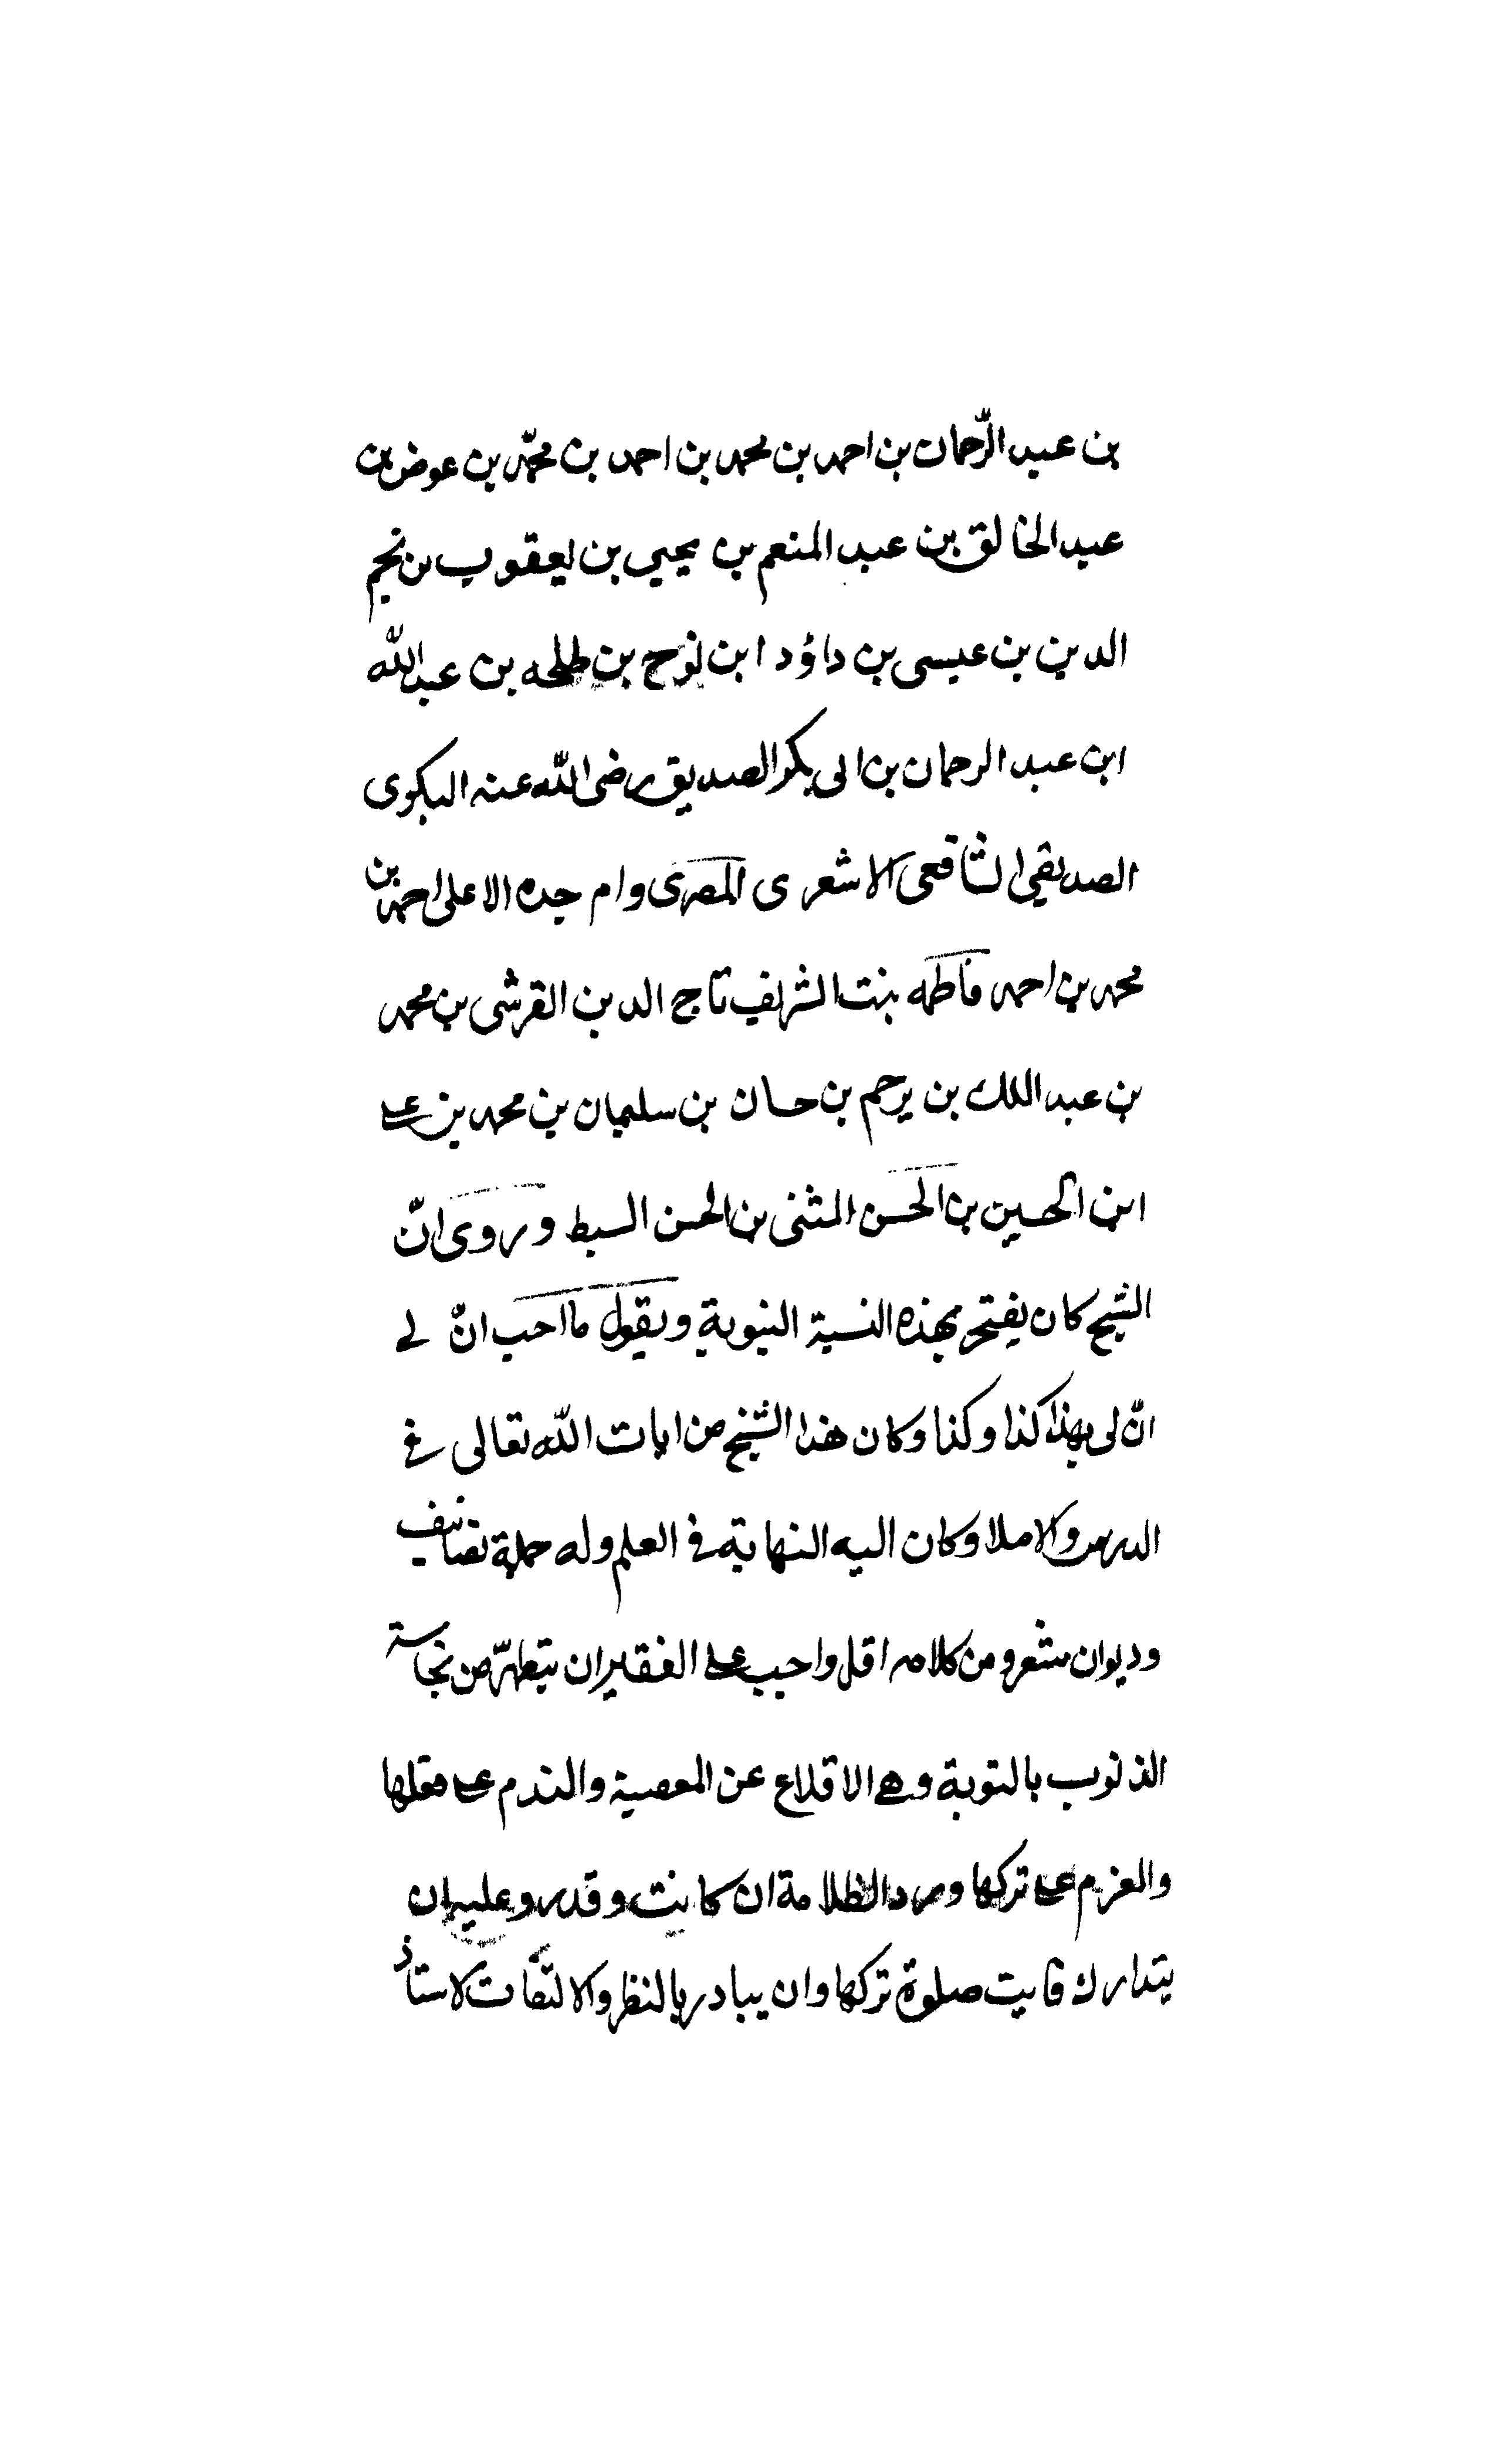 بن عبد الرّحمان بن احمد بن محمد بن احمد بن محمّد بن عوض بن
عبد الخالق بن عبد المنعم بن يحيي بن يعقوب بن نجم
الدين بن عيسى بن داؤد ابن نوح بن طلحه بن عبد الله
ابن عبد الرحمان بن ابى بكر الصديق رضى الله عنه البكرى
الصديقي الشافعى الاشعرى المصرى وام جده الاعلى احمد بن
محمد بن احمد فاطمه بنت الشريف تاج الدين القرشى بن محمد
بن عبد الملك بن يرحم بن حسان بن سليمان بن محمد بن على
ابن الحسين بن الحسن المثنى بن الحسن السبط وروى انّ
الشيخ كان يفتخر بهذه النسبة النبوية ويقول ما احب انّ لى
انّ لى بهذا كذا وكذا وكان هذا الشيخ من ايات الله تعالى فى
الدرس والاملا وكان اليه النهاية فى العلم وله جملة تصانيف
وديوان شعر ومن كلامه اقل واجب على الفقير ان يتطهّر من نجاسة
الذنوب بالتوبة وهى الاقلاع عن المعصية والندم على فعلها
والعزم على تركها ورد الظلامة ان كانت وقدر وعليه ان
يتدارك فايت صلوة تركها وان يبادر بالنظر والالتفات لاستاذ